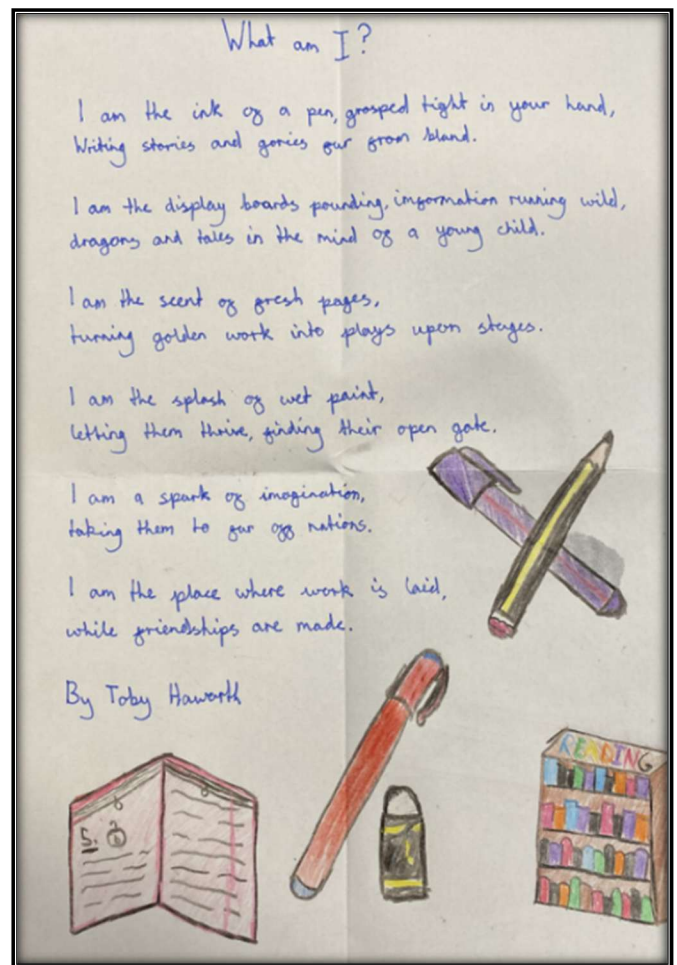 What am I?
I am the ink of a pen, grasped tight in your hand,
Writing stories and gories far from bland.
I am the display boards pounding, information running wild,
dragons and tales in the mind of a young child.
I am the scent of fresh pages,
turning golden work into plays upon stages.
I am the splash of wet paint,
letting them thrive, finding their open gate.
I am a spark of imagination,
taking them to far off nations.
I am the place where work is laid,
while friendships are made.
By Toby Haworth
READING